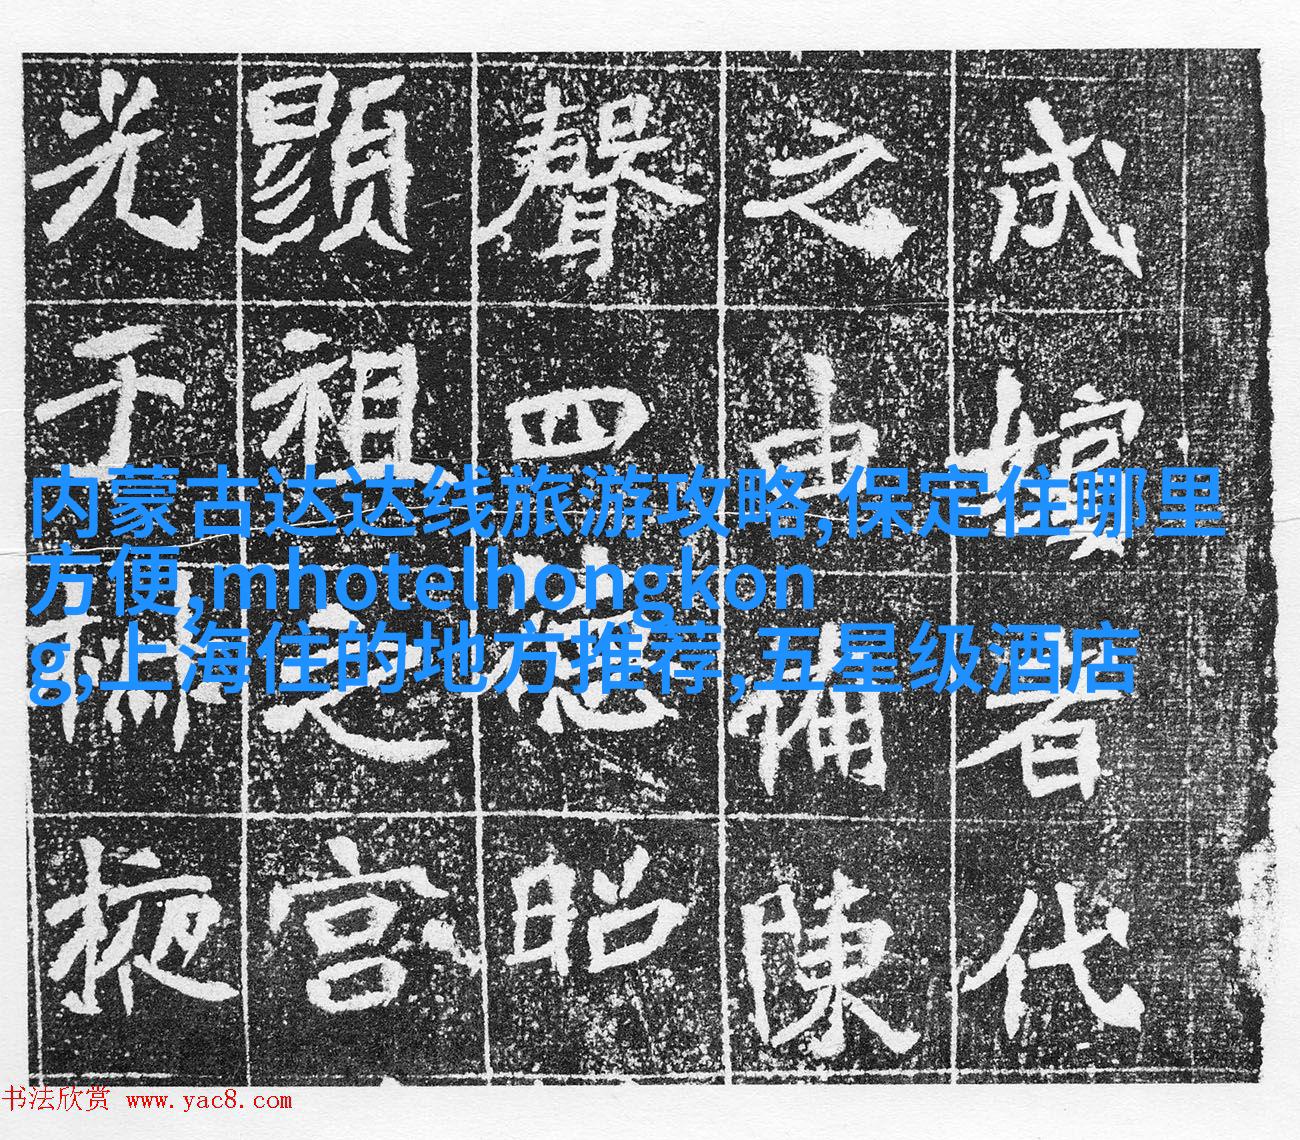 嬪者代
之申備陳
聲四德昭
顯祖之宮
光于掖
内蒙古达达线旅游攻略,保定住哪里
方便,mhotelhongkon
g,上海住的地方推荐,五星级酒店
书法欣赏 www.yac8.com